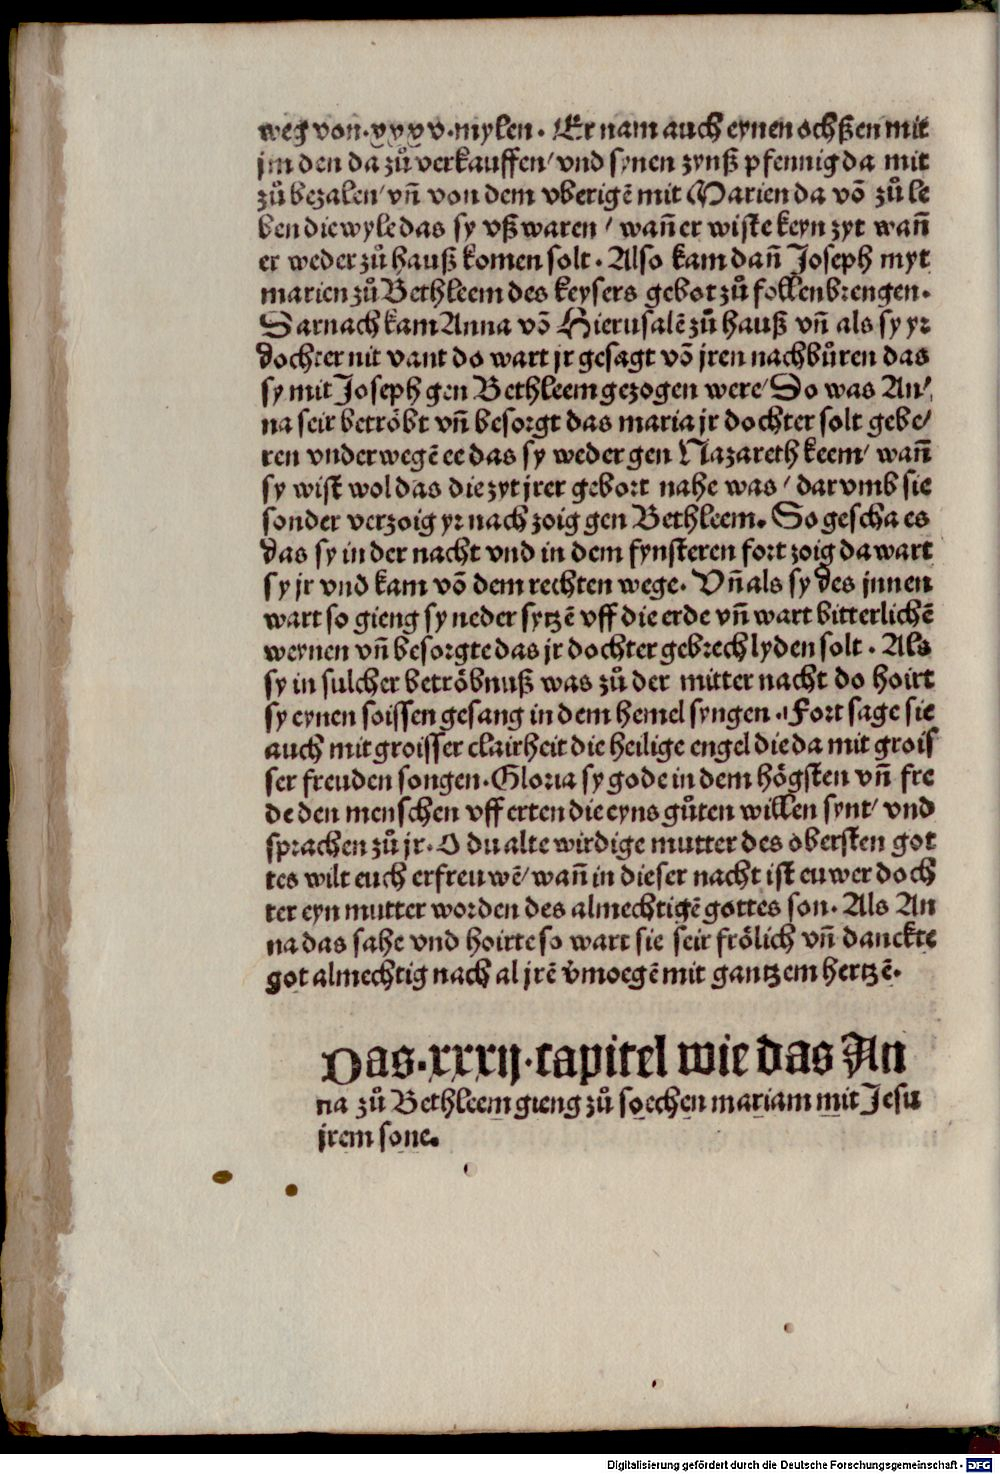 weg von·xxxv·mylen· Er nam auch eynen ochßen mit
jm den da zů verkauffen/ vnd synen zynß pfennig da mit
zů bezalen/ vñ von dem vberigē mit Marien da vō zů le
ben die wyle das sy vß waren/ wañ er wiste keyn zyt wañ
er weder zů hauß komen solt· Also kam dañ Joseph myt
marien zů Bethleem des keysers gebot zů follenbrengen·
Darnach kam Anna vō Hierusalē zů hauß vñ als sy yr
dochter nit vant do wart jr gesagt vō jren nachbůren das
sy mit Joseph gen Bethleem gezogen were/ Do was An/
na seir betröbt vñ besorgt das maria jr dochter solt gebe/
ren vnderwegē ee das sy weder gen Nazareth keem/ wañ
sy wist wol das die zyt jrer gebort nahe was/ dar vmb sie
sonder verzoig yr nach zoig gen Bethleem. So gescha es
das sy in der nacht vnd in dem fynsteren fort zoig da wart
sy jr vnd kam vō dem rechten wege· Vñ als sy des jnnen
wart so gieng sy neder sytzē vff die erde vñ wart bitterlichē
weynen vñ besorgte das jr dochter gebrech lyden solt· Als
sy in sulcher betröbnuß was zů der mitter nacht do hoirt
sy eynen soissen gesang in dem hemel syngen· Fort sage sie
auch mit groisser clairheit die heilige engel die da mit grois
ser freuden songen· Gloria sy gode in dem högsten vñ fre
de den menschen vff erten die eyns gůten willen synt/ vnd
sprachen zů jr· O du alte wirdige mutter des obersten got
tes wilt euch erfreuwē/ wañ in dieser nacht ist euwer doch
ter eyn mutter worden des almechtigē gottes son· Als An
na das sahe vnd hoirte so wart sie seir frölich vñ danckte
got almechtig nach al jrē v̄moegē mit gantzem hertzē·
Das·xxxij·capitel wie das An
na zů Bethleem gieng zů soechen mariam mit Jesu
jrem sone.
Digitalisierung gefördert durch die Deutsche Forschungsgemeinschaft - DFG